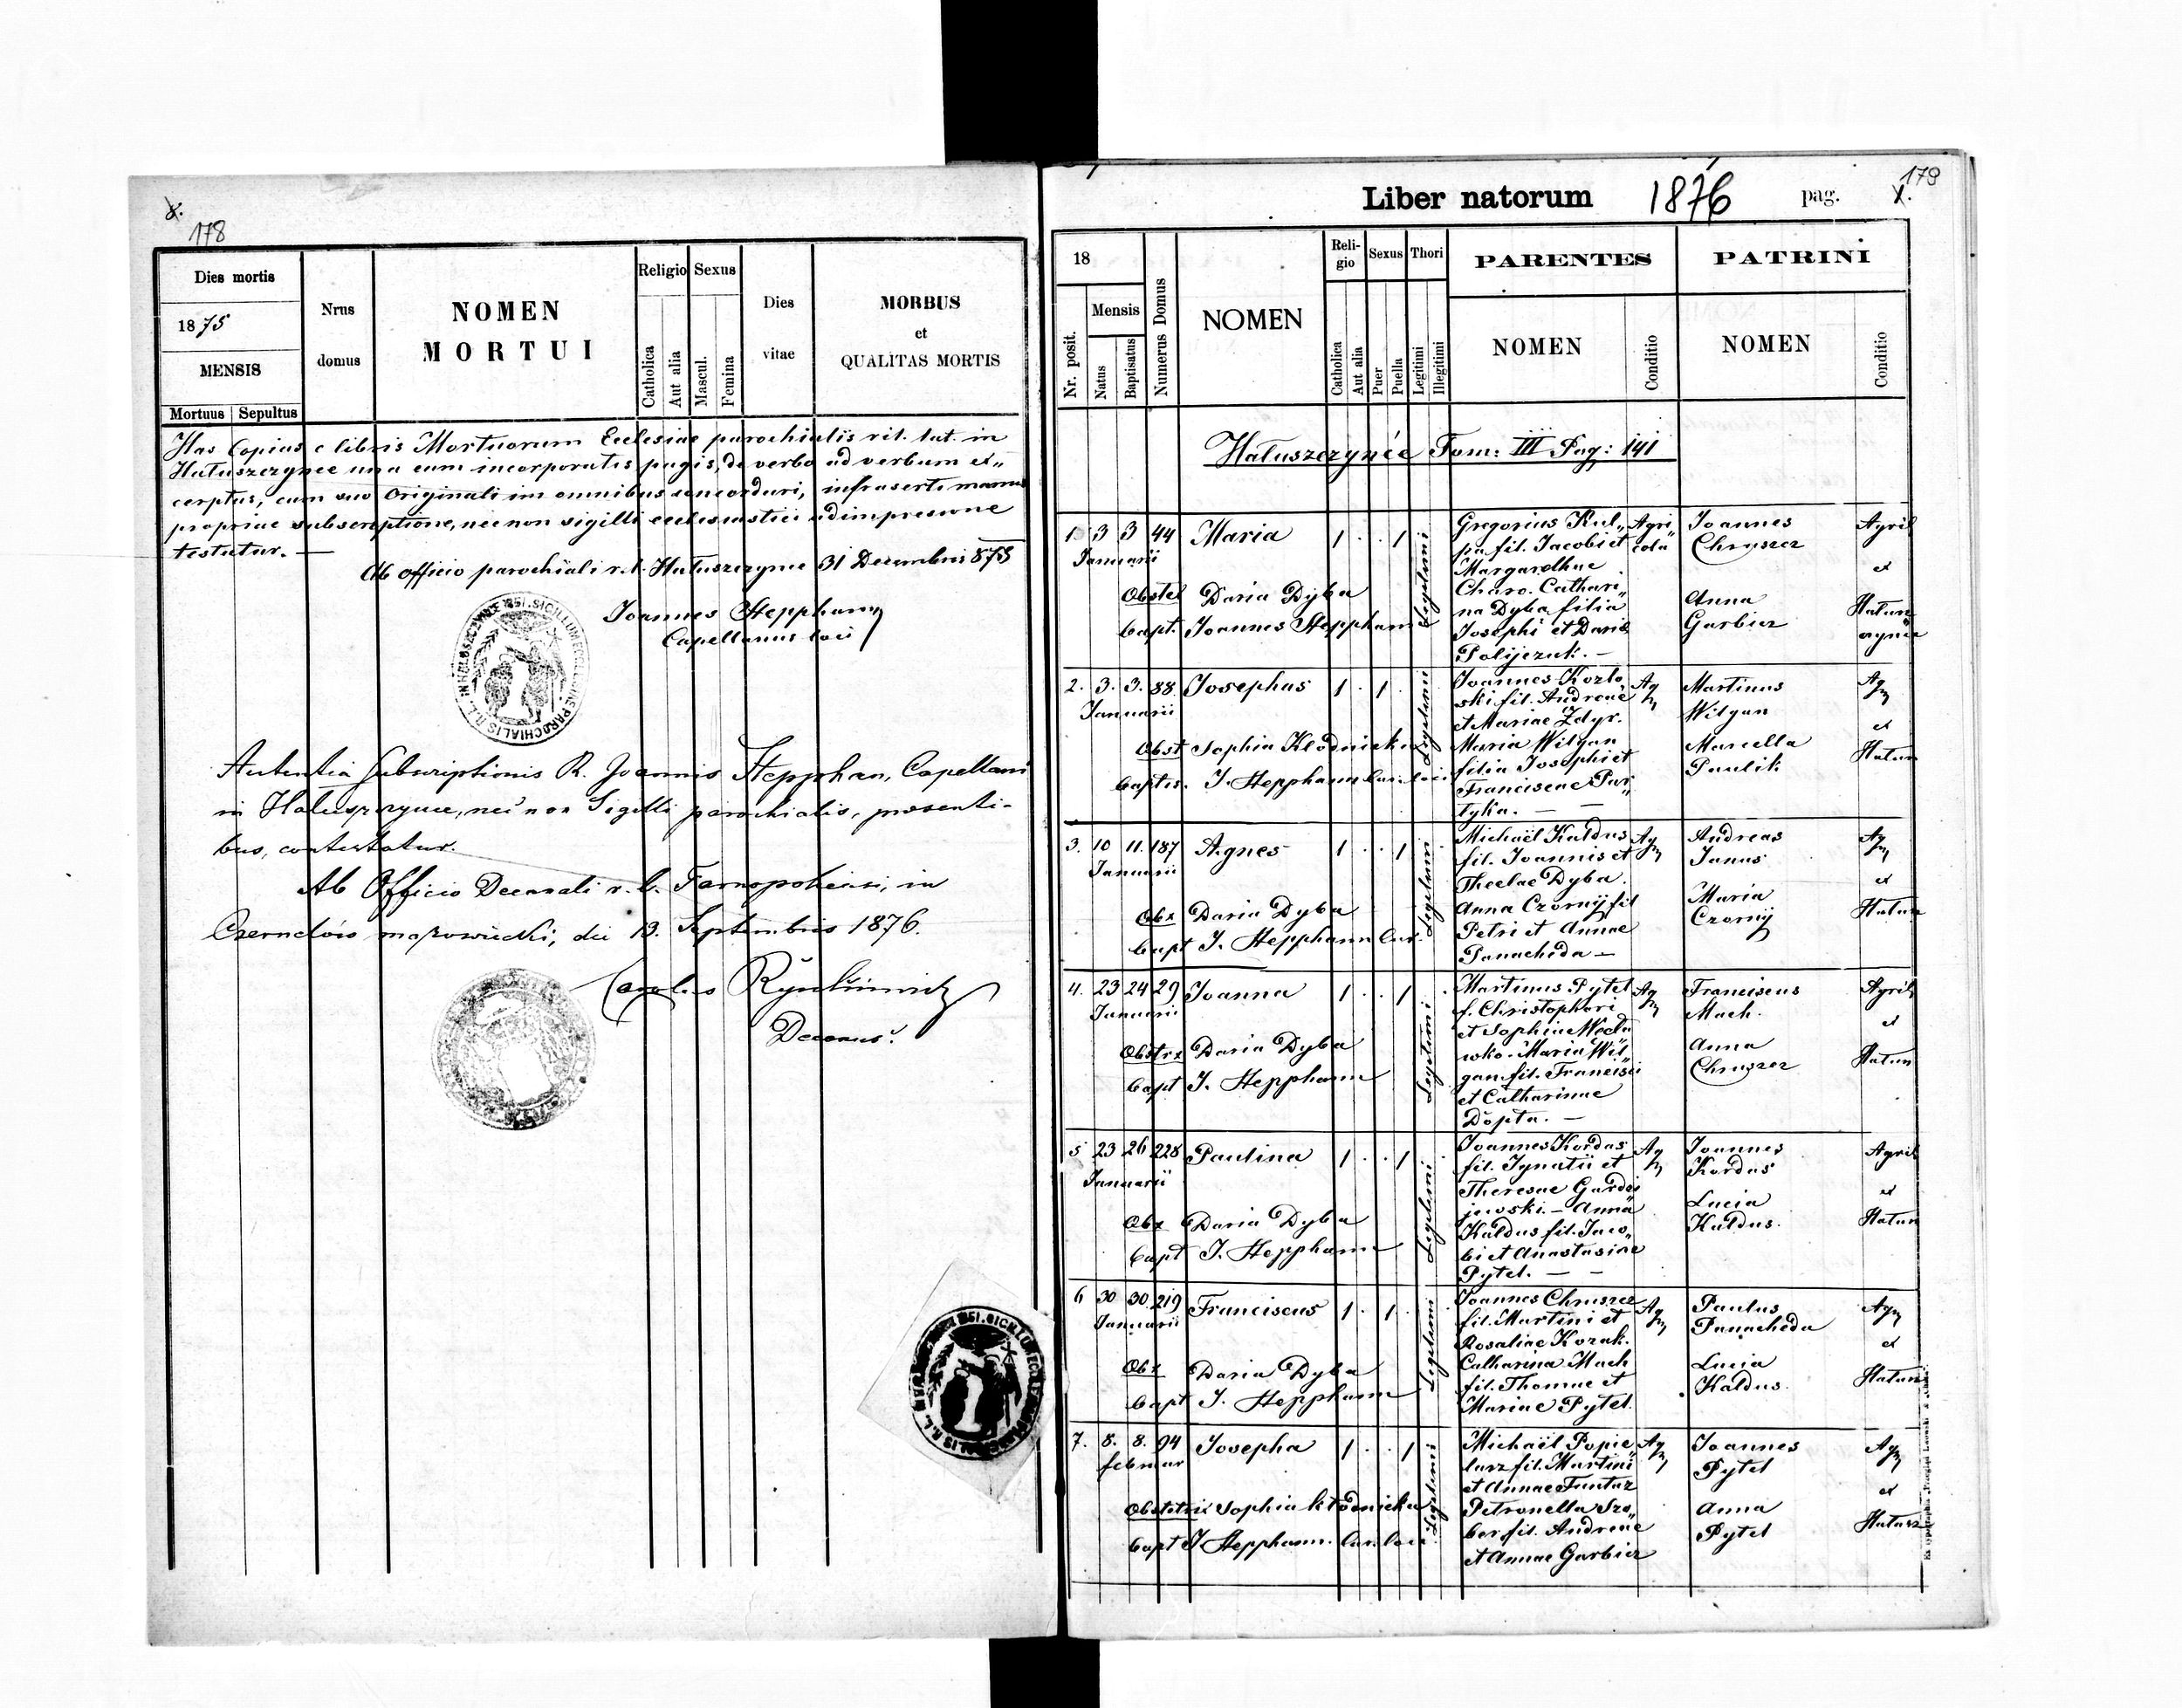 8.
178
Dies mortis
1875
MENSIS
Mortuus Sepultus
Nrus
domus
NOMEN
MORTUI
Religio
Catholica
Aut alia
Sexus
Mascul.
Femina
Dies
vitae
MORBUS
et
QUALITAS MORTIS
Has Copias e libris Mortuorum Ecclesiae parochialis rit. lat. in
Hałuszczyńce una cum incorporatis pagis, de verbo ad verbum ex„
cerptas, cum suo Originali in omnibus concordari, infraserti manus
propriae subscriptione, nec non sigilli ecclesiastici adimpresione
testatur. —
Ab officio parochiali r. l. Hałuszczyńce 31 Decembris 875
Joannes Stepphann
Capellanus loci
SIGILLUM ECCLESIAE PAROCHIALIS R.L. IN HALUSZCZYNCE 1851.
Autentia Subscriptionis R. Joannis Stepphan, Capellani
in Hałuszczynce, nec non Sigilli parochialis, presenti-
bus, contestatur.
Ab Officio Decanali r. l. Tarnopoliensi, in
mazowiecki, die 13. Septembris 1876.
Carolus
Decanus.
Liber natorum 1876 pag. 1.
179
18
Nr. posit.
Mensis
Natus
Baptisatus
Numerus Domus
NOMEN
Reli-
gio
Catholica
Aut alia
Sexus
Puer
Puella
Thori
Legitimi
Illegitimi
PARENTES
NOMEN
Conditio
PATRINI
NOMEN
Conditio
Hałuszczyńce Tom: III Pag: 141
1. 3 3 44 Maria 1 . . 1
Januarii
Obstet Daria Dyba
bapt. Joannes Stepphann
Legitimi
Gregorius Kul„
pa fil. Jacobi et
Margarethae
Charo. Cathari„
na Dyba filia
Josephi et Daria
Polijczuk. —
Agri
cola
Joannes
Chruszcz
Anna
Garbicz
Agril
et
Hałusz
czynce
2. 3. 3. 88. Josephus 1 . 1 .
Januarii
Obst Sophia Kłodnicka
baptis. J. Stepphann Cur. loci
Legitimi
Joannes Kozło
ski fil. Andreae
et Mariae Zdyr.
Maria Wilgan
filia Josephi et
Franciscae Par„
tyka. — —
Ag
Martinus
Wilgan
Marcella
Paulik
Ag
et
Hałusz
3. 10 11. 187 Agnes 1 . . 1
Januarii
Obx Daria Dyba
bapt J. Stepphann Cur.
Legitimi
Michaël Kaldus
fil. Joannis et
Theclae Dyba.
Anna Czornÿ fil
Petri et Annae
Panacheda —
Ag
Andreas
Janus
Maria
Czornÿ
Ag
et
Hałusz
4. 23 24 29 Joanna 1 . . 1
Januarii
Obstrx Daria Dyba
bapt J. Stepphann
Legitimi
Martinus Pytel
f. Christophori
et Sophiae
Maria Wil„
gan fil. Francisci
et Catharinae
Dopta. —
Ag
Franciscus
Mach.
Anna
Chruszcz
Agril
et
Hałusz
5 23 26 228 Paulina 1 . . 1
Januarii
Obx Daria Dyba
bapt J. Stepphann
Legitimi
Joannes Kordas
fil. Ignatii et
Theresae Gardzi
jewski. — Anna
Kaldus fil. Jaco„
bi et Anastasiae
Pytel. — —
Ag
Joannes
Kordas
Lucia
Kaldus.
Agril
et
Hałusz
6 30 30. 219 Franciscus 1 . 1 .
Januarii
Obx Daria Dyba
bapt J. Stepphann
Legitimi
Joannes Chruszcz
fil. Martini et
Rosaliae Kozak.
Catharina Mach
fil. Thomae et
Mariae Pytel.
Ag
Paulus
Panacheda
Lucia
Kaldus.
Ag
et
Hałusz
7. 8. 8. 94 Josepha 1 . . 1
februar
Obstetrix Sophia Kłodnicka
bapt J Stepphann. Cur. loci
Legitimi
Michaël Popie
larz fil. Martini
et Annae Funtuz
Petronella Szo„
ber fil. Andreae
et Annae Garbicz
Ag
Joannes
Pytel
Anna
Pytel
Ag
et
Hałusz